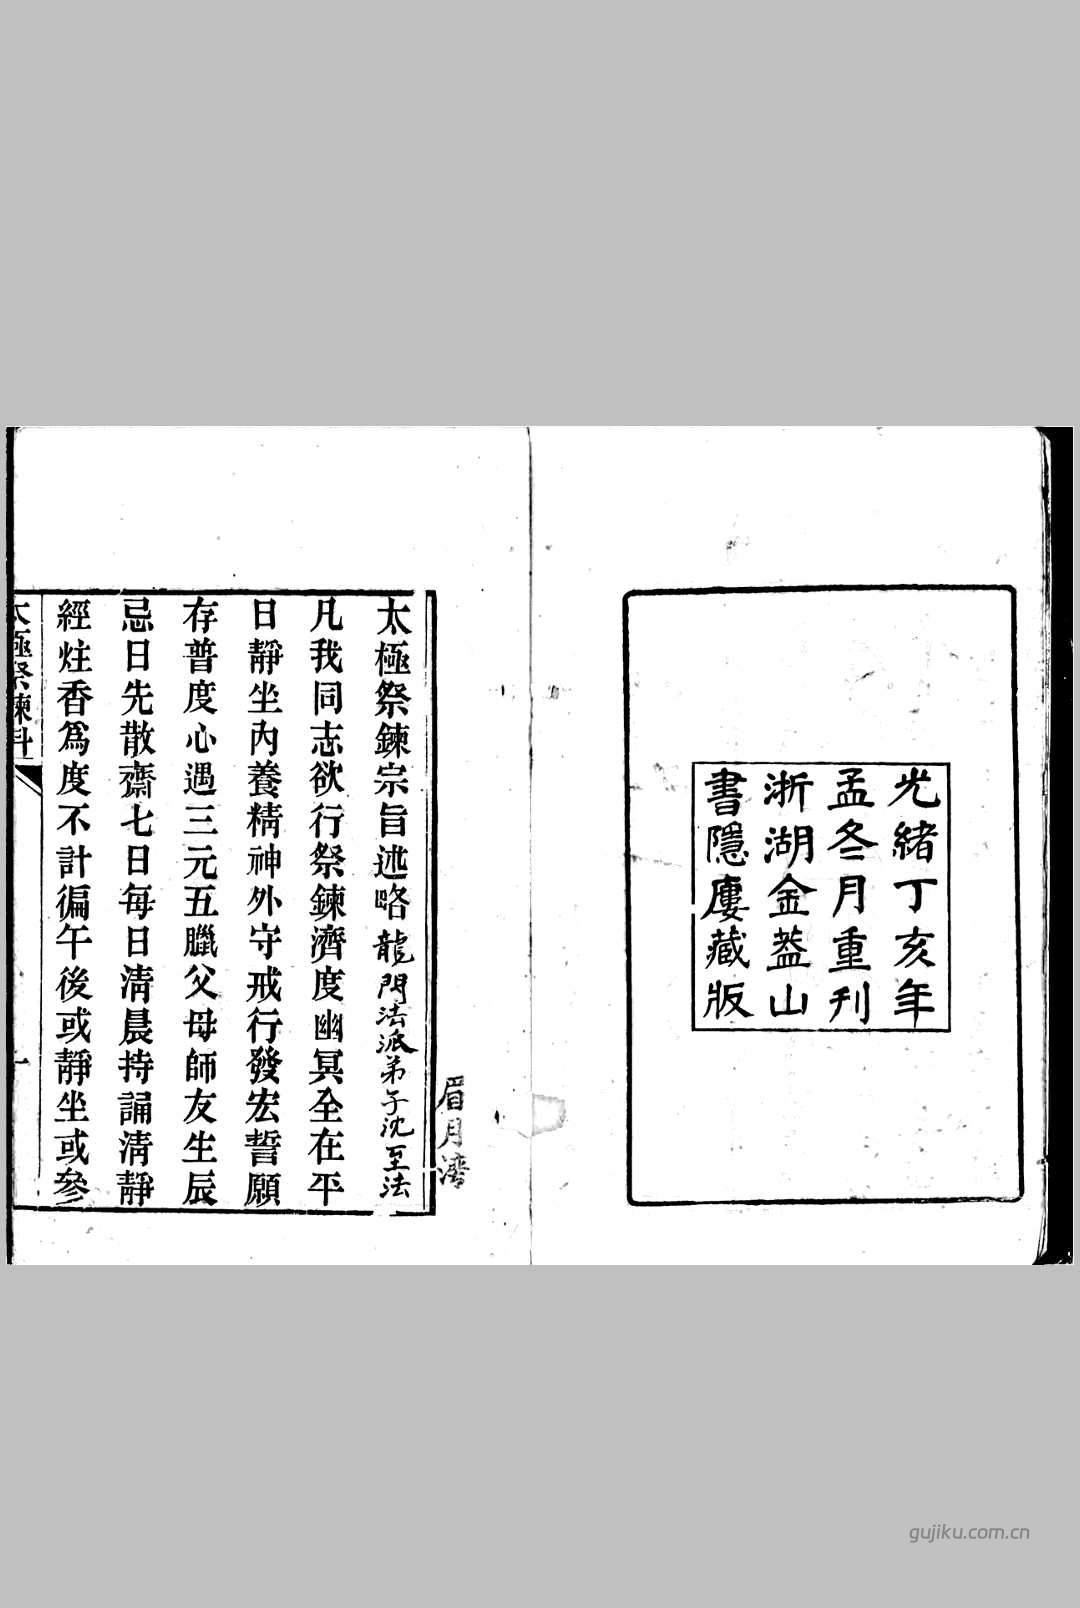 光緒丁亥年
孟冬月重刊
浙湖金葢山
書隱廔藏版
眉月灣
太極祭鍊宗旨述略龍門法派弟子沈至法
凡我同志欲行祭鍊濟度幽冥全在平
日靜坐內養精神外守戒行發宏誓願
存普度心遇三元五臘父母師友生辰
忌日先散齋七日每日清晨持誦清靜
經炷香爲度不計徧午後或靜坐或參
太極祭鍊科
一
gujiku.com.cn